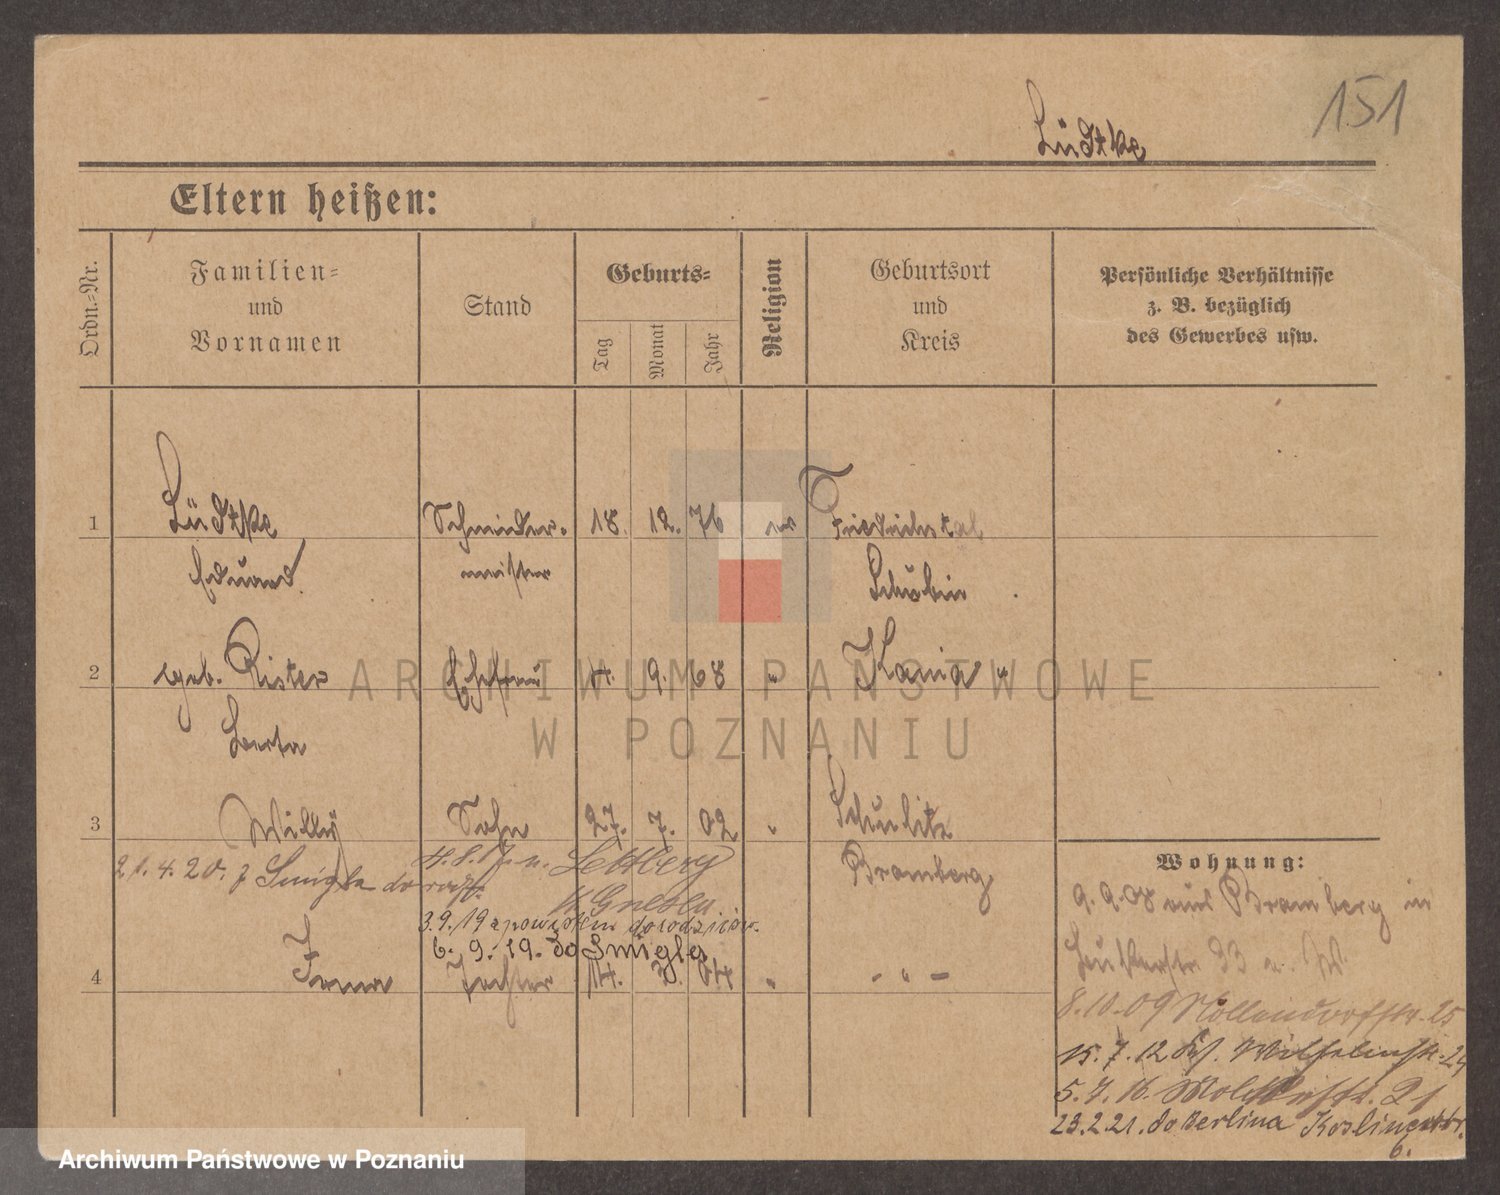 151
Lüdtke
Eltern heißen:
Ordn.-Nr.
Familien-
und
Vornamen
Stand
Geburts-
Tag
Monat
Jahr
Religion
Geburtsort
und
Kreis
Persönliche Verhältnisse
z. B. bezüglich
des Gewerbes usw.
1 Lüdtke Schneider- 18. 12. 76 ev Friedrichstal
Eduard meister Schubin
2 geb. Rister Ehefrau 4. 9. 68 " Kania
Berta
3 Willy Sohn 27. 7. 02 " Schulitz
Bromberg
21.4.20. z Smigla do
3.9.19 z powrotem do rodziców.
6. 9. 19. do Smigla
4 Irma Tochter 14. 04 " - " -
Wohnung:
9.9.08 aus Bromberg in
33
8.10.09 Nollendorfstr. 25
15.7.12 Wilhelmstr. 24
5.7.16. Moltkestr. 21
23.2.21. do Berlina Koslinerstr.
6.
ARCHIWUM PAŃSTWOWE
W POZNANIU
Archiwum Państwowe w Poznaniu